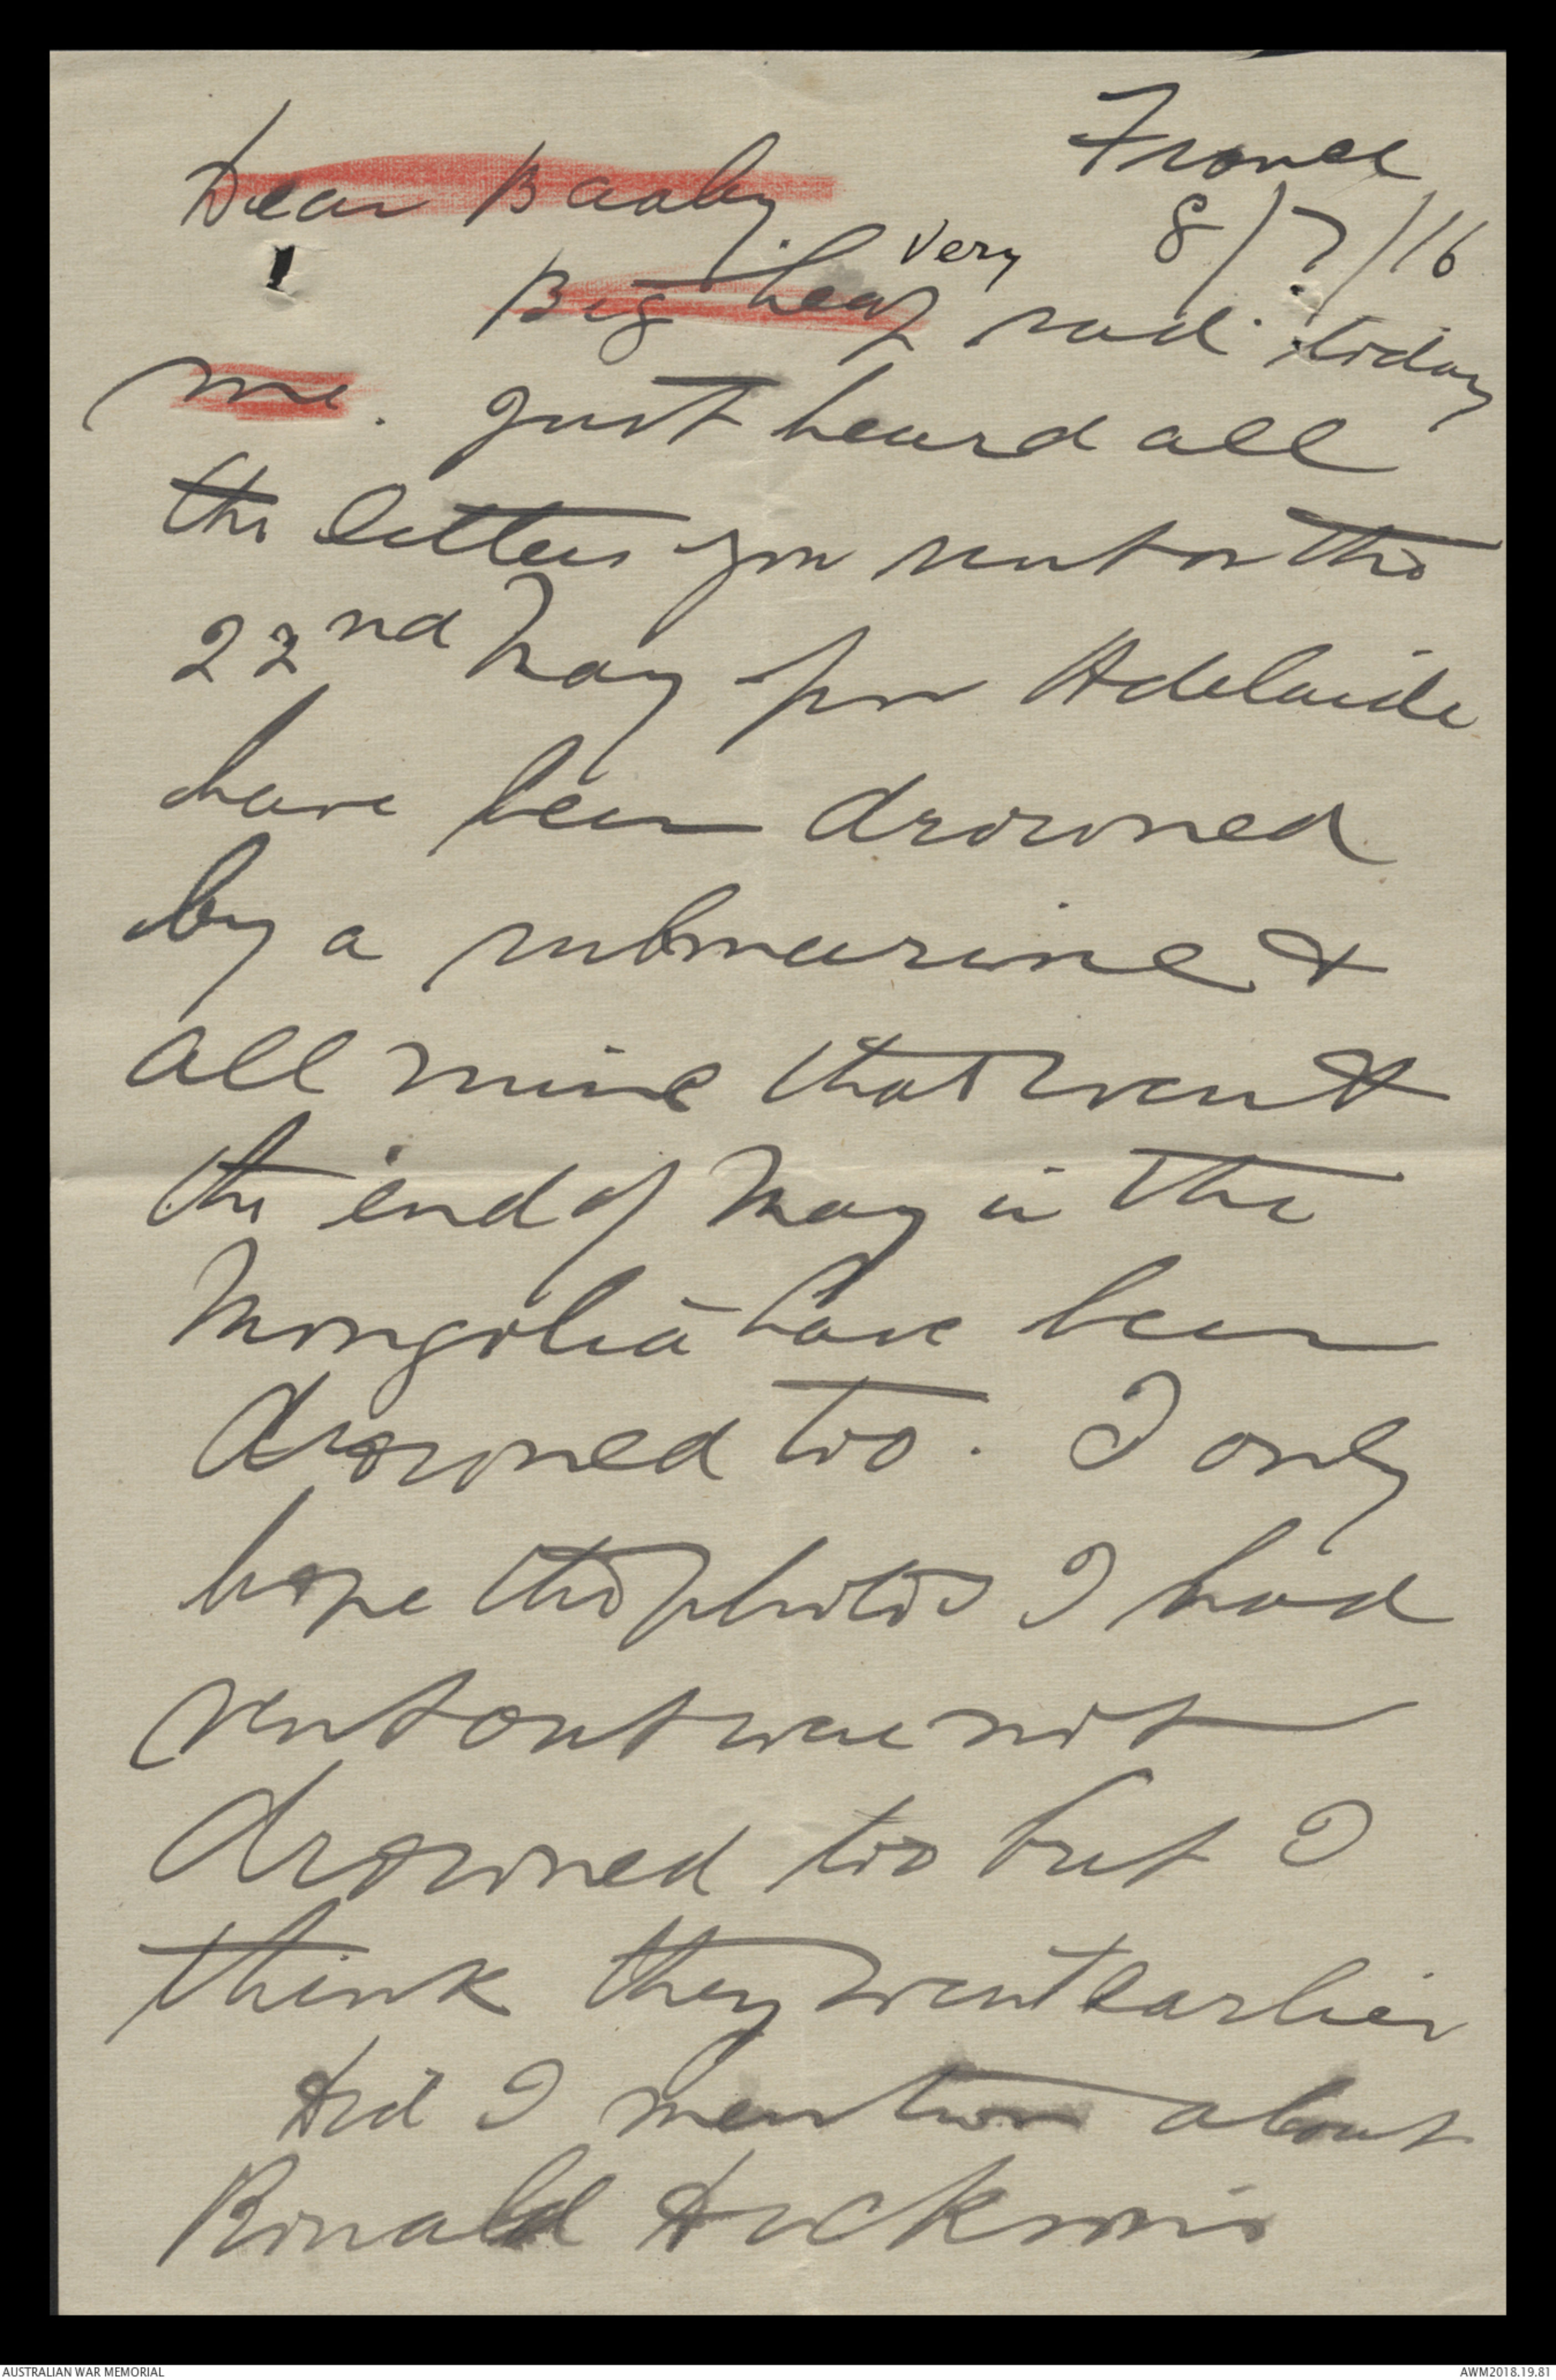 France
8/7/16
Dear Baaby.
Very
Big heap sad today
me. Just heard all
the letters you sent on the
22nd May per Adelaide
have been drowned
by a submarine &
all mine that went
the end of May in the
Mongolia have been
drowned too. I only
hope the photos I had
sent out were not
drowned too but I
think they went earlier
Did I mention about
Ronald Dickson's
AUSTRALIAN WAR MEMORIAL
AWM2018.19.81